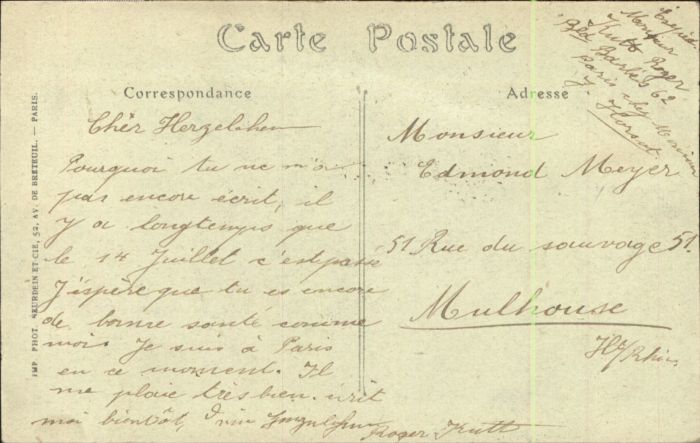 Carte Postale
Correspondance
Chèr Herzelchen
Pourquoi tu ne m'a
pas encore écrit, il
y a longtemps que
le 14 Juillet c'est passé
J'éspère que tu es encore
de bonne santé comme
moi. Je suis à Paris
en ce moment. Il
me plaie très bien. écrit
moi bientôt,
Roger Kutt
Adresse
Monsieur
Edmond Meyer
51 Rue du sauvage 51.
Mulhouse
Ht Rhin
Monsieur
Kutt Roger
Bld Barbès 62
Paris chez Monsieur
IMP. PHOT. NEURDEIN ET CIE, 52, AV. DE BRETEUIL. — PARIS.